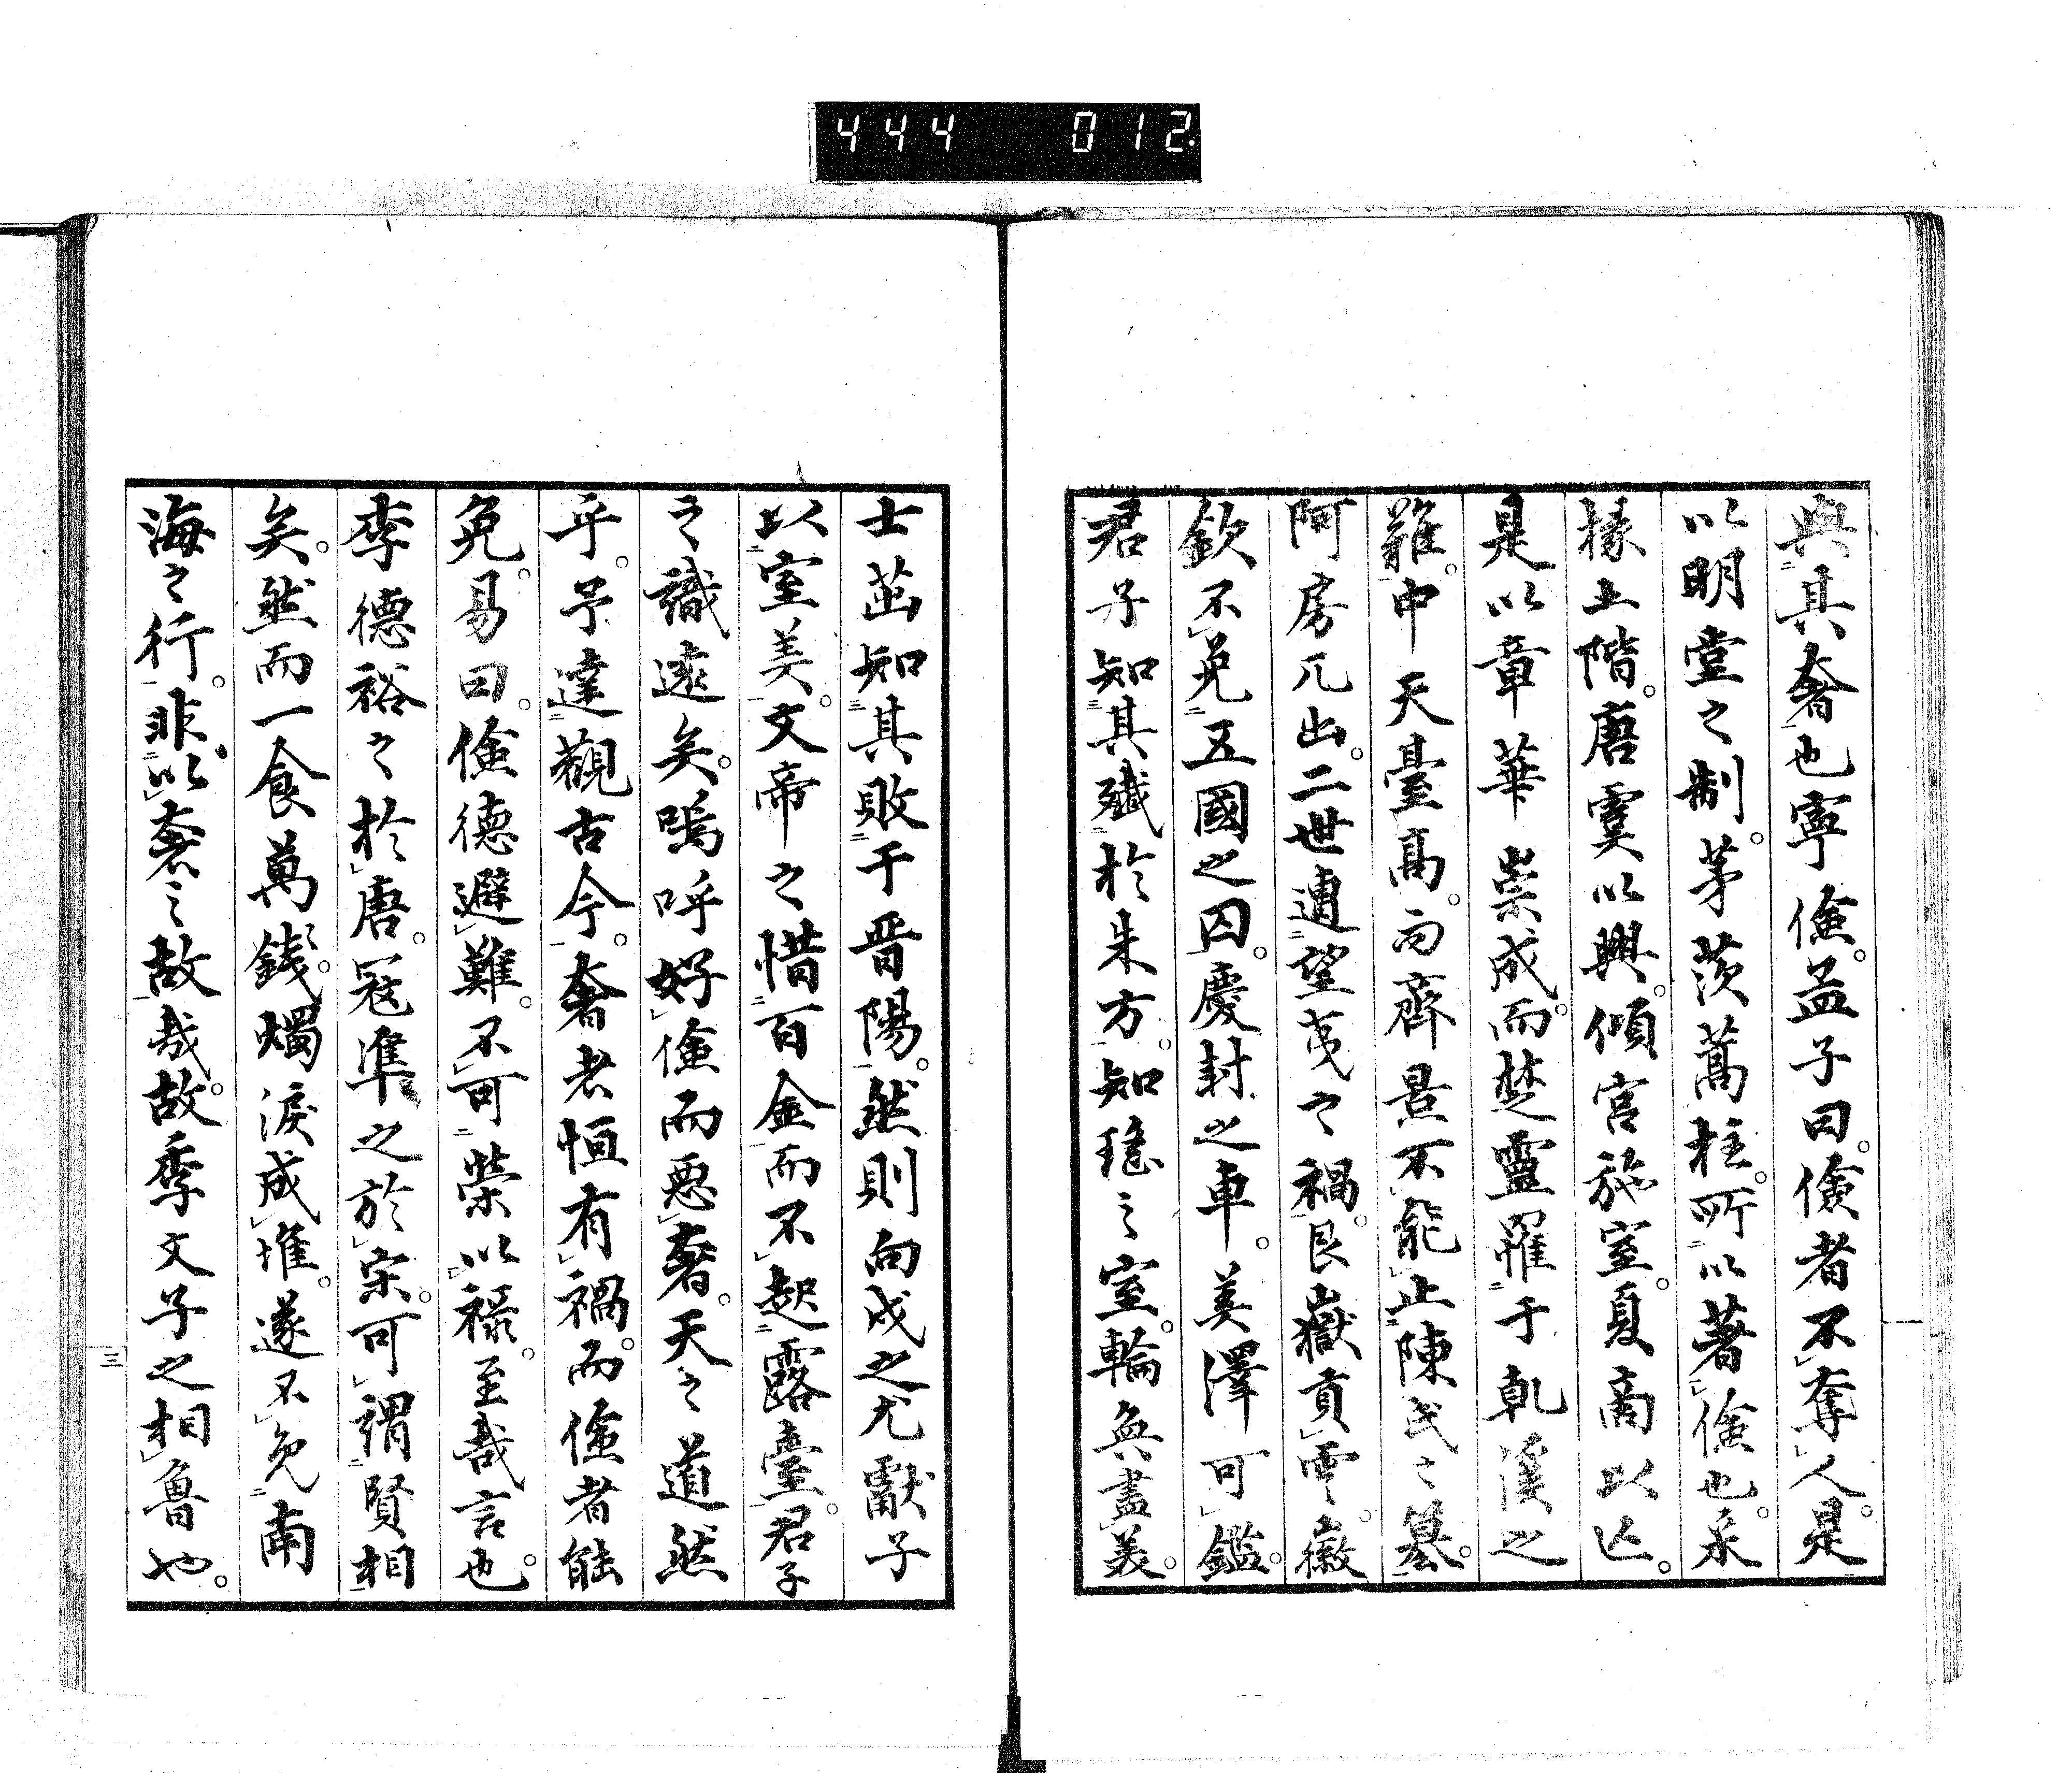 444 012
與其奢也寧儉。孟子曰。儉者不奪人。是
以明堂之制。茅茨蒿柱。所以著儉也。采
椽土階。唐虞以興。傾宮旋室。夏商以亡。
是以章華崇成。而楚靈罹于乾溪之
難。中天臺高。而齊景不能止陳氏之纂。
阿房兀出。二世遭望夷之禍。艮嶽貢雲。徽
欽不免五國之囚。慶封之車。美澤可鑑。
君子知其殲於朱方。知瑤之室。輪奐盡美。
士茁知其敗于晋陽。然則向戌之尤獻子
以室美。文帝之惜百金而不起露臺。君子
之識遠矣。嗚呼好儉而惡奢。天之道然
乎。予達觀古今。奢者恒有禍。而儉者能
免。易曰。儉德避難。不可榮以祿。至哉言也。
李德裕之於唐。寇準之於宋。可謂賢相
矣。然而一食萬錢。燭淚成堆。遂不免南
海之行。非以奢之故哉。故季文子之相魯也。
三